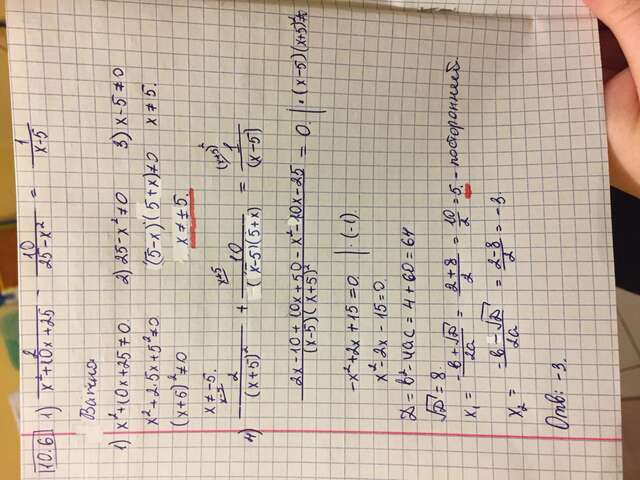 10.6 1) 2/(x²+10x+25) - 10/(25-x²) = 1/(x-5)
1) x²+10x+25≠0. 2) 25-x²≠0 3) x-5≠0
x²+2·5x+5²≠0 (5-x)(5+x)≠0 x≠5.
(x+5)²≠0 x≠±5.
x≠-5.
4) 2/(x+5)² + 10/((x-5)(5+x)) = 1/(x-5)
x-5 x+5 (x+5)²
(2x-10+10x+50-x²-10x-25)/((x-5)(x+5)²) = 0. | ·(x-5)(x+5)²
-x²+2x+15=0. | ·(-1).
x²-2x-15=0.
D = b²-4ac = 4+60=64
√D=8.
x₁ = (-b+√D)/2a = (2+8)/2 = 10/2 = 5. - посторонний.
x₂ = (-b-√D)/2a = (2-8)/2 = -3.
Отв: -3.